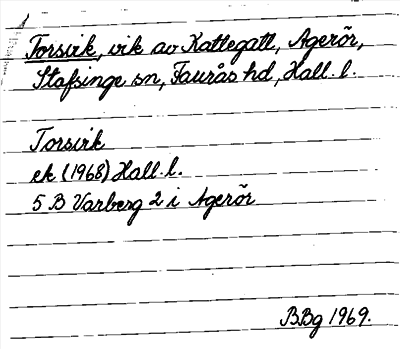 Torsvik, vik av Kattegatt, Agerör,
Stafsinge sn, Faurås hd, Hall. l.
Torsvik
ek (1968) Hall. l.
5 B Varberg 2 i Agerör
BBg 1969.